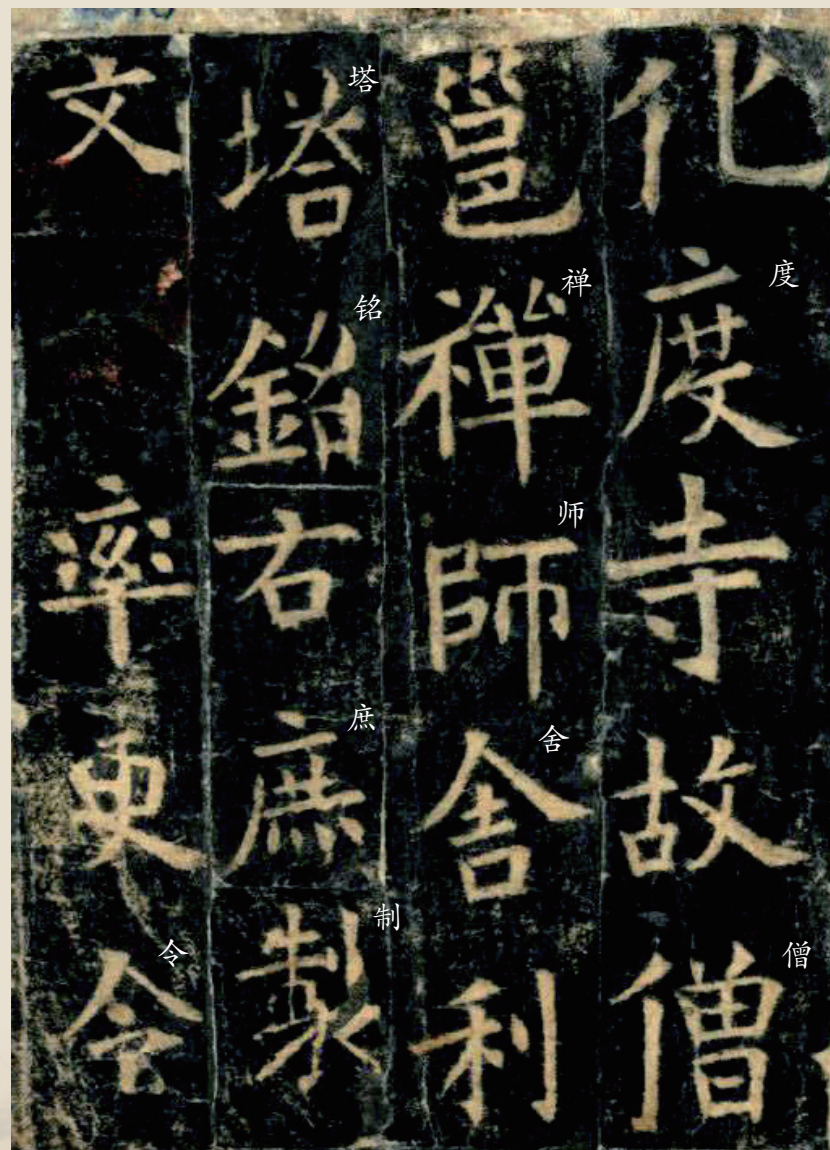 化度寺故僧
度
僧
邕禪師舍利
禅
师
舍
塔銘右庶製
塔
铭
庶
制
文率更令
令